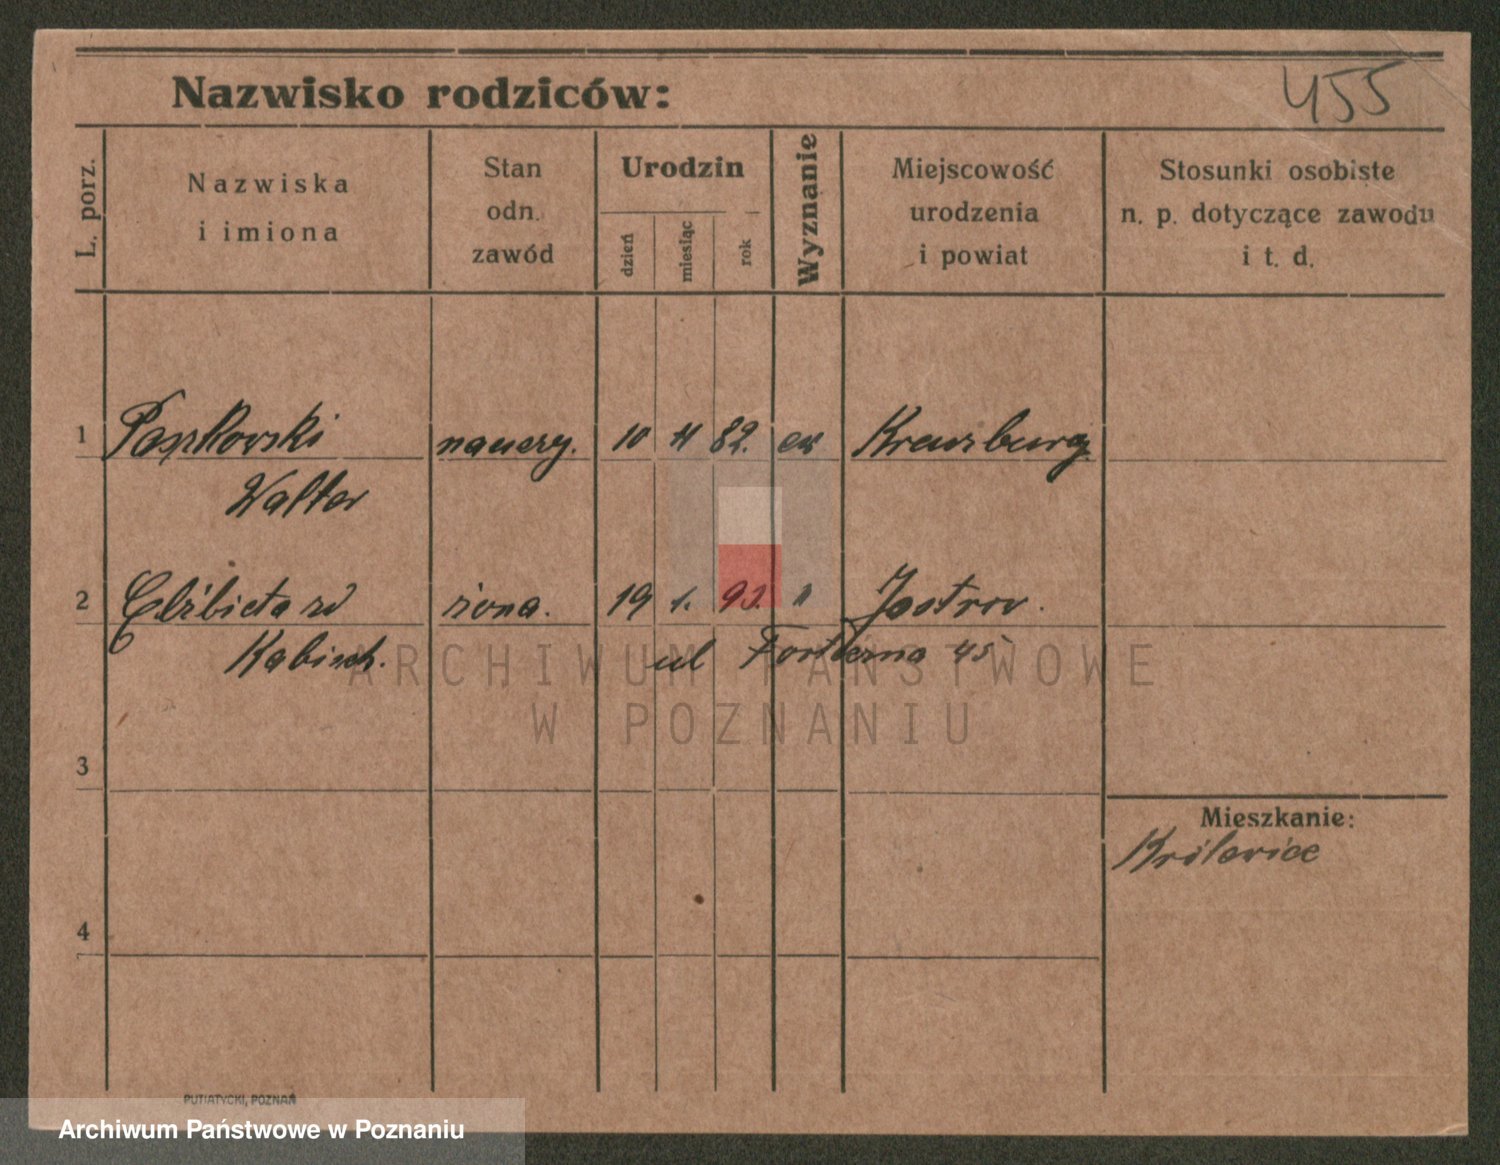 455
Nazwisko rodziców:
L. porz.
Nazwiska
i imiona
Stan
odn.
zawód
Urodzin
dzień
miesiąc
rok
Wyznanie
Miejscowość
urodzenia
i powiat
Stosunki osobiste
n. p. dotyczące zawodu
i t. d.
1 nauczy. 10 11 82. ew Kreuzburg
Walter
2 Elżbieta żona. 19 1. 93. " Jastrow.
Kabisch. ul 45
ARCHIWUM PAŃSTWOWE
W POZNANIU
3
Mieszkanie:
4
PUTIATYCKI, POZNAŃ
Archiwum Państwowe w Poznaniu